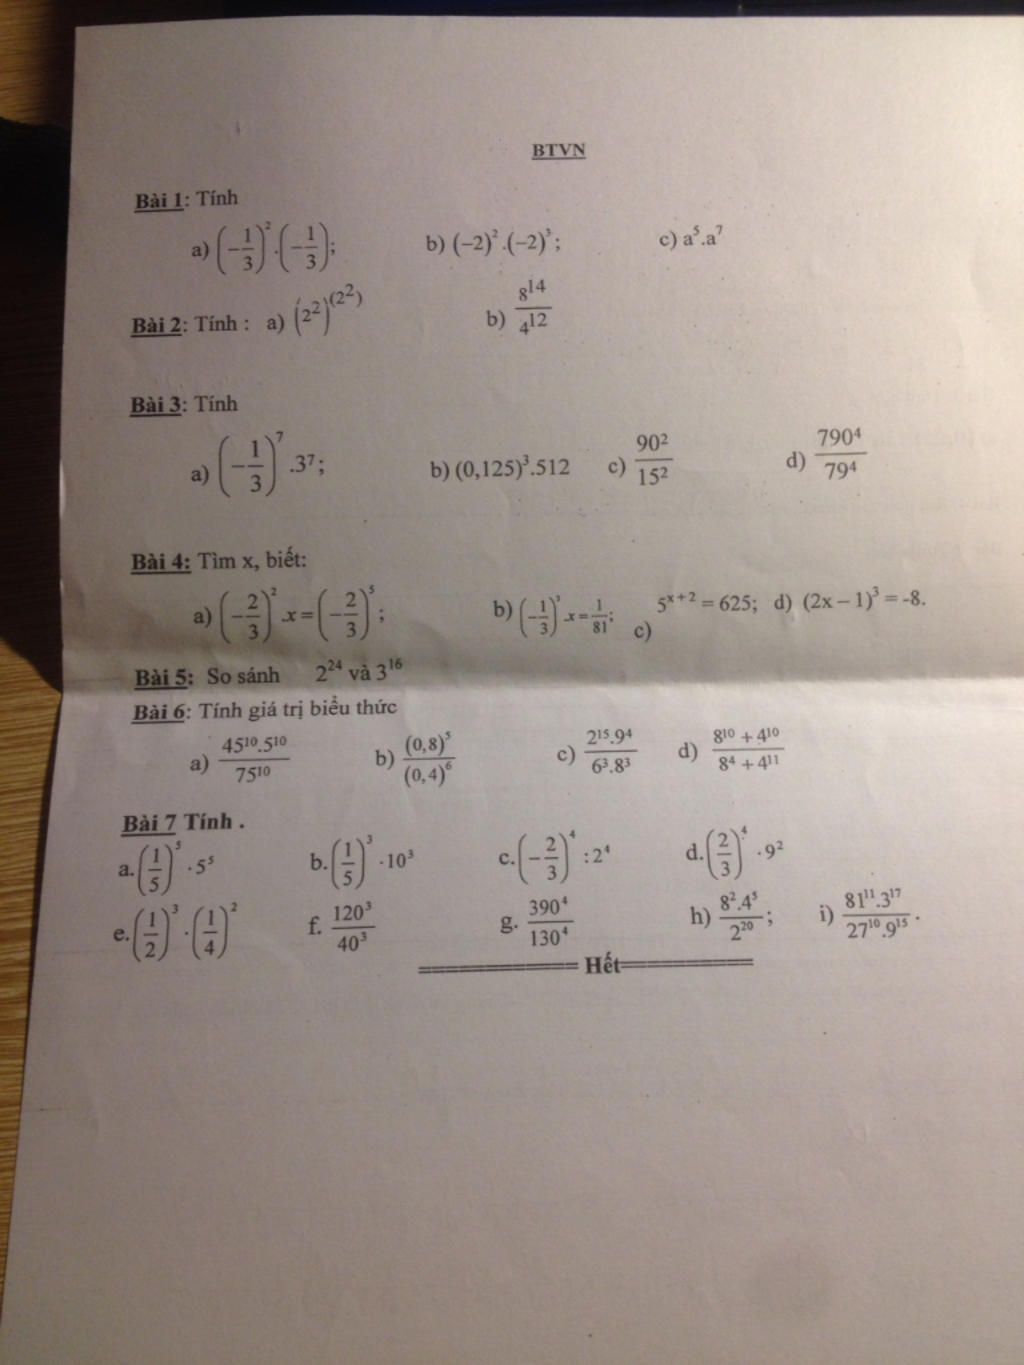 BTVN
Bài 1: Tính
a) (−1/3)².(−1/3); b) (−2)².(−2)³; c) a⁵.a⁷
Bài 2: Tính : a) (2²)^(2²) b) 8¹⁴/4¹²
Bài 3: Tính
a) (−1/3)⁷.3⁷; b) (0,125)³.512 c) 90²/15² d) 790⁴/79⁴
Bài 4: Tìm x, biết:
a) (−2/3)².x=(−2/3)⁵; b) (−1/3)³.x=1/81; c) 5ˣ⁺² = 625; d) (2x − 1)³ = -8.
Bài 5: So sánh 2²⁴ và 3¹⁶
Bài 6: Tính giá trị biểu thức
a) 45¹⁰.5¹⁰/75¹⁰ b) (0,8)⁵/(0,4)⁶ c) 2¹⁵.9⁴/6³.8³ d) 8¹⁰ + 4¹⁰/8⁴ + 4¹¹
Bài 7 Tính .
a. (1/5)⁵ · 5⁵ b. (1/5)³ · 10³ c. (−2/3)⁴ : 2⁴ d. (2/3)⁴ · 9²
e. (1/2)³ · (1/4)² f. 120³/40³ g. 390⁴/130⁴ h) 8².4⁵/2²⁰; i) 81¹¹.3¹⁷/27¹⁰.9¹⁵.
============ Hết==========